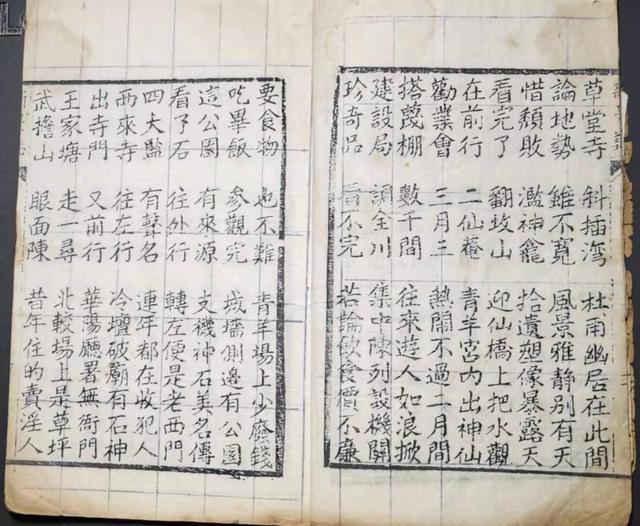 草堂寺 斜插湾 杜甫幽居在此間
論地勢 雖不寬 風景雅静别有天
惜頹敗 濫神龕 拾遺塑像暴露天
看完了 翻坟山 迎仙橋上把水觀
在前行 二仙菴 青羊宮内出神仙
勸業會 三月三 熱鬧不過二月間
搭蔑棚 數千間 往來遊人如浪掀
建設局 調全川 集中陳列設機關
珍奇品 看不完 若論飲食價不亷
要食物 也不難 青羊場上少廢錢
吃畢飯 參觀完 城墻側邊有公園
這公園 有來源 支機神石美名傳
看了石 往外行 轉左便是老西門
四大監 有聲名 連年都在收犯人
西來寺 往左行 冷壇破廟有石神
出寺門 又前行 華陽廳署無衙門
王家塘 走一尋 北較場上是草坪
武擔山 眼面陳 昔年住的賣淫人